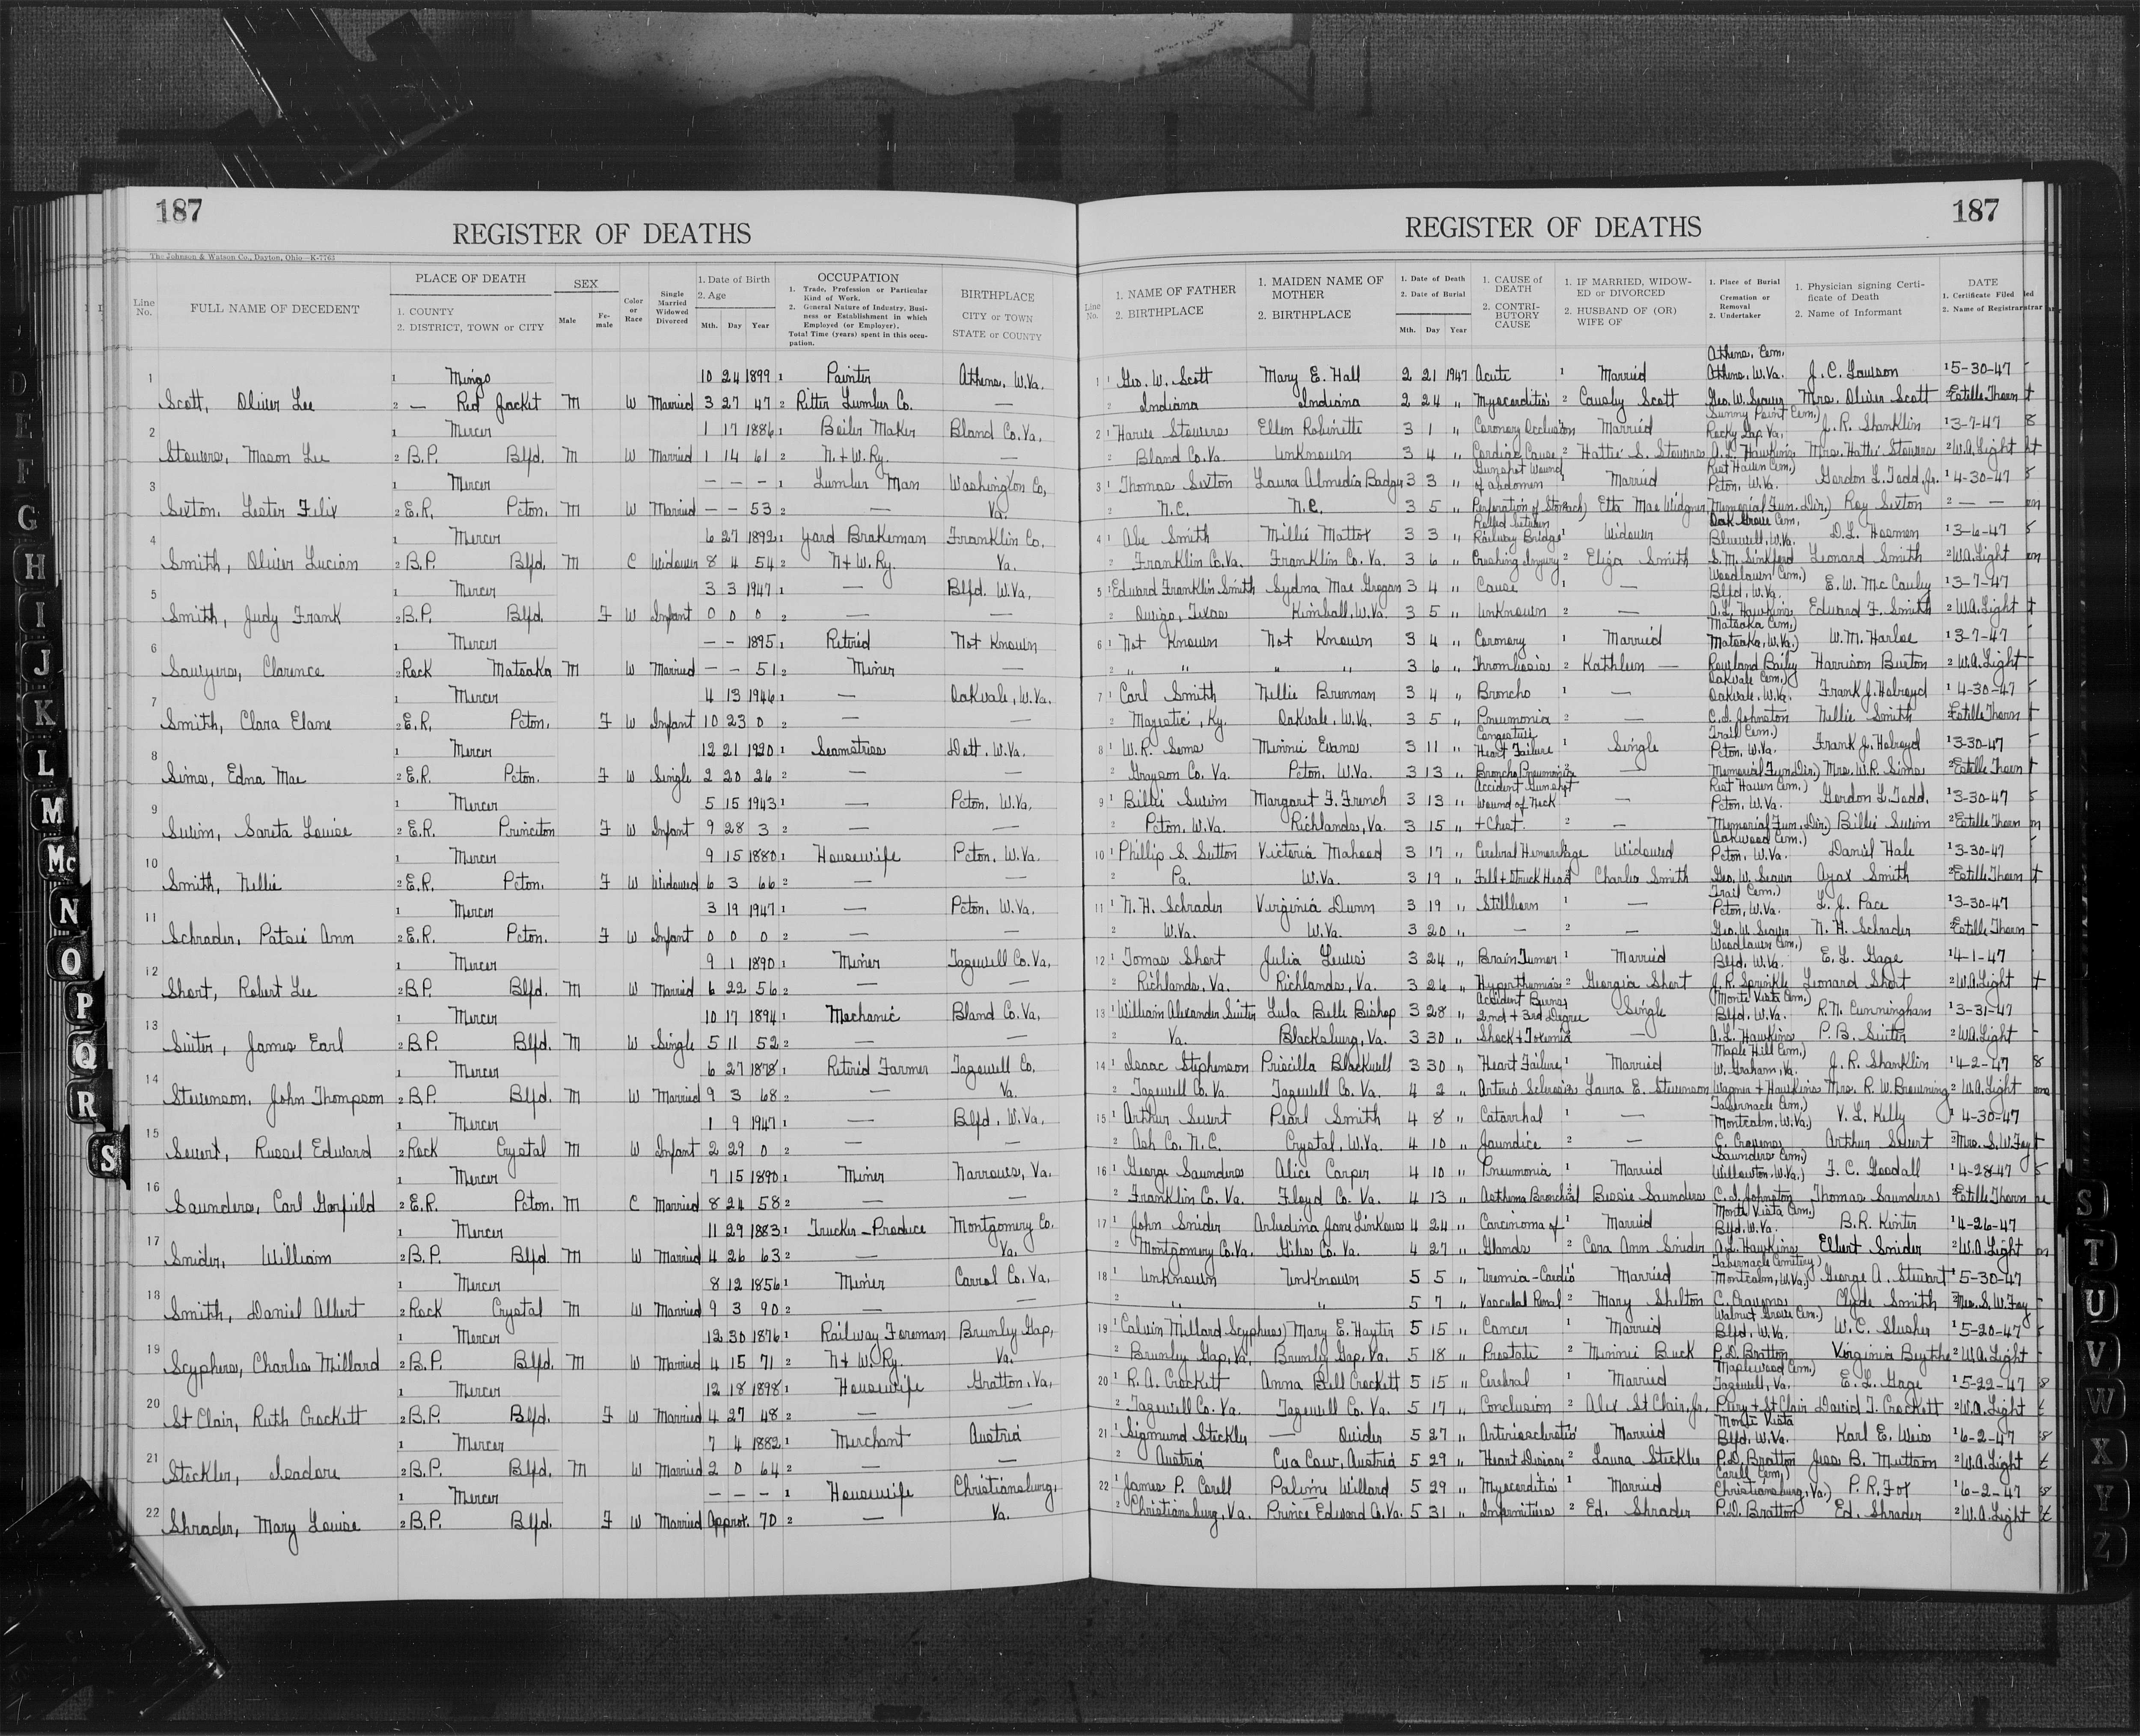 187
REGISTER OF DEATHS
The Johnson & Watson Co., Dayton, Ohio—K-7763
Line No.
FULL NAME OF DECEDENT
PLACE OF DEATH
1. COUNTY
2. DISTRICT, TOWN or CITY
SEX
Male
Fe-male
Color or Race
Single Married Widowed Divorced
1. Date of Birth
2. Age
Mth. Day Year
OCCUPATION
1. Trade, Profession or Particular Kind of Work.
2. General Nature of Industry, Busi-ness or Establishment in which Employed (or Employer).
Total Time (years) spent in this occu-pation.
BIRTHPLACE
CITY or TOWN
STATE or COUNTY
1 1 Mingo 10 24 1899 1 Painter Athens, W.Va.
Scott, Oliver Lee 2 — Red Jacket M W Married 3 27 47 2 Ritter Lumber Co. —
2 1 Mercer 1 17 1886 1 Boiler Maker Bland Co. Va.
Stowers, Mason Lee 2 B.P. Blfd. M W Married 1 14 61 2 N. + W. Ry. —
3 1 Mercer — — — 1 Lumber Man Washington Co,
Sexton, Lester Felix 2 E.R. Pcton. M W Married — — 53 2 — Va.
4 1 Mercer 6 27 1892 1 Yard Brakeman Franklin Co.
Smith, Oliver Lucian 2 B.P. Blfd. M C Widower 8 4 54 2 N + W. Ry. Va.
5 1 Mercer 3 3 1947 1 — Blfd. W.Va.
Smith, Judy Frank 2 B.P. Blfd. F W Infant 0 0 0 2 — —
6 1 Mercer — — 1895 1 Retired Not Known
Sawyers, Clarence 2 Rock Matoaka M W Married — — 51 2 Miner —
7 1 Mercer 4 13 1946 1 — Oakvale, W.Va.
Smith, Clara Elane 2 E.R. Pcton. F W Infant 10 23 0 2 — —
8 1 Mercer 12 21 1920 1 Seamstress Dott. W.Va.
Sims, Edna Mae 2 E.R. Pcton. F W Single 2 20 26 2 — —
9 1 Mercer 5 15 1943 1 — Pcton. W.Va.
Swim, Sareta Louise 2 E.R. Princeton F W Infant 9 28 3 2 — —
10 1 Mercer 9 15 1880 1 Housewife Pcton. W.Va.
Smith, Nellie 2 E.R. Pcton. F W Widowed 6 3 66 2 — —
11 1 Mercer 3 19 1947 1 — Pcton. W.Va.
Schrader, Patsie Ann 2 E.R. Pcton. F W Infant 0 0 0 2 — —
12 1 Mercer 9 1 1890 1 Miner Tazewell Co. Va.
Short, Robert Lee 2 B.P. Blfd. M W Married 6 22 56 2 — —
13 1 Mercer 10 17 1894 1 Mechanic Bland Co. Va.
Suiter, James Earl 2 B.P. Blfd. M W Single 5 11 52 2 — —
14 1 Mercer 6 27 1878 1 Retired Farmer Tazewell Co.
Stevenson, John Thompson 2 B.P. Blfd. M W Married 9 3 68 2 — Va.
15 1 Mercer 1 9 1947 1 — Blfd. W.Va.
Seuert, Russel Edward 2 Rock Crystal M W Infant 2 29 0 2 — —
16 1 Mercer 7 15 1890 1 Miner Narrows, Va.
Saunders, Carl Garfield 2 E.R. Pcton. M C Married 8 24 58 2 — —
17 1 Mercer 11 29 1883 1 Trucker - Produce Montgomery Co.
Snider, William 2 B.P. Blfd. M W Married 4 26 63 2 — Va.
18 1 Mercer 8 12 1856 1 Miner Carrol Co. Va.
Smith, Daniel Albert 2 Rock Crystal M W Married 9 3 90 2 — —
19 1 Mercer 12 30 1876 1 Railway Foreman Brumly Gap,
Scyphers, Charles Millard 2 B.P. Blfd. M W Married 4 15 71 2 N + W. Ry. Va.
20 1 Mercer 12 18 1898 1 Housewife Gratton, Va.
St Clair, Ruth Crockett 2 B.P. Blfd. F W Married 4 27 48 2 — —
21 1 Mercer 7 4 1882 1 Merchant Austria
Steckler, Isadore 2 B.P. Blfd. M W Married 2 0 64 2 — —
22 1 Mercer — — — 1 Housewife Christiansburg,
Shrader, Mary Louise 2 B.P. Blfd. F W Married Approx. 70 2 — Va.
REGISTER OF DEATHS
187
Line No.
1. NAME OF FATHER
2. BIRTHPLACE
1. MAIDEN NAME OF MOTHER
2. BIRTHPLACE
1. Date of Death
2. Date of Burial
Mth. Day Year
1. CAUSE of DEATH
2. CONTRI-BUTORY CAUSE
1. IF MARRIED, WIDOW-ED or DIVORCED
2. HUSBAND OF (OR) WIFE OF
1. Place of Burial Cremation or Removal
2. Undertaker
1. Physician signing Certi-ficate of Death
2. Name of Informant
DATE
1. Certificate Filed
2. Name of Registrar
Athens, Cem.
1 1 Geo. W. Scott Mary E. Hall 2 21 1947 Acute 1 Married Athens, W.Va. J. C. Lawson 1 5-30-47
2 Indiana Indiana 2 24 " Myocarditis 2 Causby Scott Geo. W. Seaver Mrs. Oliver Scott 2 Estelle Thorn
Sunny Point Cem.)
2 1 Harve Stowers Ellen Robinette 3 1 " Coronary Occlusion Married Rocky Gap. Va. J. R. Shanklin 1 3-7-47
2 Bland Co. Va. Unknown 3 4 " Cardiac Cause 2 Hattie S. Stowers A. L. Hawkins Mrs. Hattie Stowers 2 W.A. Light
Gunshot Wound Rest Haven Cem.)
3 1 Thomas Sexton Laura Almedia Badger 3 3 " of abdomen Married Pcton, W.Va. Gordon L. Todd, Jr. 1 4-30-47
2 N.C. N.C. 3 5 " Perforation of Stomach) Etta Mae Widener Memorial Fun. Dir.) Roy Sexton 2 — —
Rolled between Oak Grove Cem.
4 1 Abe Smith Millie Mattox 3 3 " Railway Bridge 1 Widower Bluewell, W.Va. D.L. Hosmen 1 3-6-47
2 Franklin Co. Va. Franklin Co. Va. 3 6 " Crushing Injury 2 Eliza Smith S. M. Sinkford Leonard Smith 2 W.A. Light
Woodlawn Cem.)
5 1 Edward Franklin Smith Sydna Mae Grogan 3 4 " Cause 1 — Blfd, W.Va. E. W. McCauley 1 3-7-47
2 Texas Kimball, W.Va. 3 5 " Unknown 2 — A. L. Hawkins Edward F. Smith 2 W.A. Light
Matoaka Cem.)
6 1 Not Known Not Known 3 4 " Coronary 1 Married Matoaka, W.Va.) W. M. Harloe 1 3-7-47
2 " " " " 3 6 " Thrombosis 2 Kathleen — Rowland Bailey Harrison Burton 2 W.A. Light
Oakvale Cem.)
7 1 Carl Smith Nellie Brennan 3 4 " Broncho 1 — Oakvale, W.Va. Frank J. Holroyd 1 4-30-47
2 Majestic, Ky. Oakvale, W.Va. 3 5 " Pneumonia 2 — C. I. Johnston Nellie Smith 2 Estelle Thorn
Congestive Trail Cem.)
8 1 W. R. Sims Minnie Evans 3 11 " Heart Failure 1 Single Pcton, W.Va. Frank J. Holroyd 1 3-30-47
2 Grayson Co. Va. Pcton, W.Va. 3 13 " Broncho Pneumonia 2 — Memorial Fun. Dir.) Mrs. W. R. Sims 2 Estelle Thorn
Accident Gunshot Rest Haven Cem.)
9 1 Billie Swim Margaret F. French 3 13 " Wound of Neck — Pcton, W.Va. Gordon L. Todd. 1 3-30-47
2 Pcton, W.Va. Richlands, Va. 3 15 " + Chest. 2 — Memorial Fun. Dir.) Billie Swim 2 Estelle Thorn
Oakwood Cem.)
10 1 Phillip S. Sutton Victoria Mahood 3 17 " Cerebral Hemorrhage Widowed Pcton, W.Va. Daniel Hale 1 3-30-47
2 Pa. W.Va. 3 19 " Fall + Struck Head 2 Charles Smith Geo. W. Seaver Ajax Smith 2 Estelle Thorn
Trail Cem.)
11 1 N. H. Schrader Virginia Dunn 3 19 " Stillborn 1 — Pcton, W.Va. L. J. Pace 1 3-30-47
2 W.Va. W.Va. 3 20 " — 2 — Geo. W. Seaver N. H. Schrader 2 Estelle Thorn
Woodlawn Cem.)
12 1 Tomas Short Julia Lewis 3 24 " Brain Tumor 1 Married Blfd, W.Va. E. L. Gage 1 4-1-47
2 Richlands, Va. Richlands, Va. 3 26 " Hyperthermia 2 Georgia Short J. R. Sprinkle Leonard Short 2 W.A. Light
Accident Burns (Monte Vista Cem.)
13 1 William Alexander Suiter Lula Belle Bishop 3 28 " 2nd + 3rd Degree Single Blfd, W.Va. R. N. Cunningham 1 3-31-47
2 Va. Blacksburg, Va. 3 30 " Shock + Toxemia — A. L. Hawkins P. B. Suiter 2 W.A. Light
Maple Hill Cem.)
14 1 Isaac Stephenson Priscilla Blackwell 3 30 " Heart Failure 1 Married W. Graham, Va. J. R. Shanklin 1 4-2-47
2 Tazewell Co. Va. Tazewell Co. Va. 4 2 " Arterio Sclerosis Laura E. Stevenson Wagner + Hawkins Mrs. R. W. Browning 2 W.A. Light
Tabernacle Cem.)
15 1 Arthur Seuert Pearl Smith 4 8 " Catarrhal 1 — Montcalm, W.Va.) V. L. Kelly 1 4-30-47
2 Ash Co. N.C. Crystal, W.Va. 4 10 " Jaundice 2 — C. Cravens Arthur Seuert 2 Mrs. S. W. Foy
Saunders Cem.)
16 1 George Saunders Alice Carper 4 10 " Pneumonia 1 Married Willowton, W.Va.) F. C. Goodall 1 4-28-47
2 Franklin Co. Va. Floyd Co. Va. 4 13 " Asthma Bronchial Bessie Saunders C. I. Johnston Thomas Saunders 2 Estelle Thorn
Monte Vista Cem.)
17 1 John Snider Jane Linkous 4 24 " Carcinoma of 1 Married Blfd, W.Va. B. R. Kinter 1 4-26-47
2 Montgomery Co. Va. Giles Co. Va. 4 27 " Glands 2 Cora Ann Snider A. L. Hawkins Elbert Snider 2 W.A. Light
Tabernacle Cemetery
18 1 Unknown Unknown 5 5 " Uremia - Cardio Married Montcalm, W.Va.) George A. Stewart 1 5-30-47
2 " " 5 7 " Vascular Renal 2 Mary Shelton C. Cravens Clyde Smith 2 Mrs. S. W. Foy
Walnut Grove Cem.)
19 1 Calvin Millard Scyphers) Mary E. Hayter 5 15 " Cancer 1 Married Blfd, W.Va. W. C. Slusher 1 5-20-47
2 Brumly Gap, Va. Brumly Gap, Va. 5 18 " Prostate 2 Minnie Buck P. D. Bratton Virginia Blythe 2 W.A. Light
Maplewood Cem.)
20 1 R. A. Crockett Anna Bell Crockett 5 15 " Cerebral 1 Married Tazewell, Va. E. L. Gage 1 5-22-47
2 Tazewell Co. Va. Tazewell Co. Va. 5 17 " Conclusion 2 Alex St Clair, Jr. Peery + St Clair David T. Crockett 2 W.A. Light
Monte Vista
21 1 Sigmund Steckler — Ouider 5 27 " Arteriosclerotic Married Blfd, W.Va. Karl E. Weiss 1 6-2-47
2 Austria Austria 5 29 " Heart Disease 2 Laura Steckler P. D. Bratton Jess B. Muttson 2 W.A. Light
Carell Cem.)
22 1 James P. Carell Palvine Willard 5 29 " Myocarditis 1 Married Christiansburg, Va.) P. R. Fox 1 6-2-47
2 Christiansburg, Va. Prince Edward Co. Va. 5 31 " Infirmities 2 Ed. Shrader P. D. Bratton Ed. Shrader 2 W.A. Light
D
E
F
G
H
I
J
K
L
M
Mc
N
O
P
Q
R
S
S
T
U
V
W
X
Y
Z